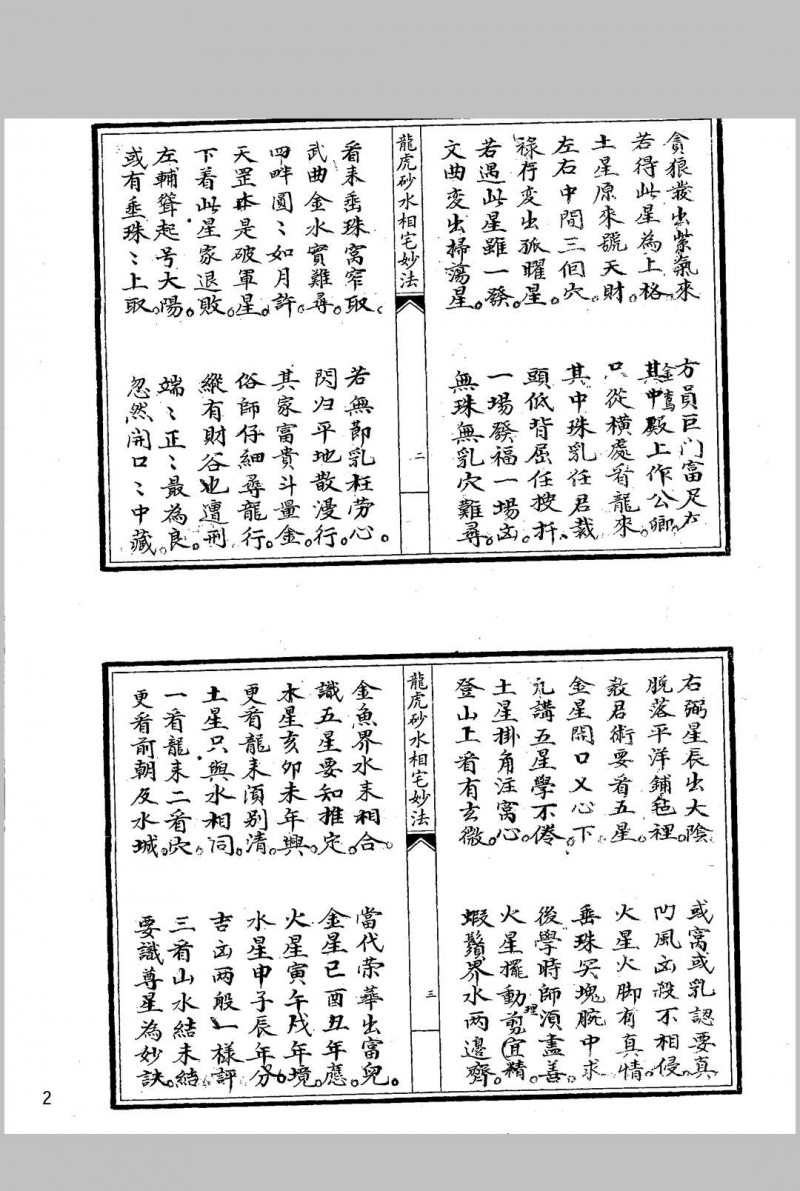 貪狼發出紫氣來 方員巨门富足才
若得此星為上格 其中殿上作公卿
金鸞
土星原來號天財 只從橫處看龍來
左右中間三個穴 其中珠乳任君裁
祿存変出孤曜星 頭低背屈任披扦
若遇此星雖一發 一場發福一場凶
文曲変出掃蕩星 無珠無乳穴難尋
龍虎砂水相宅妙法
二
看来垂珠窩窄取 若無節乳枉劳心
武曲金水實難尋 閃归平地散漫行
四畔圓〻如月許 其家富貴斗量金
天罡本是破軍星 俗師仔細尋龍行
下着此星家退敗 縱有財谷也遭刑
左輔聳起号大陽 端〻正〻最為良
或有垂珠〻上取 忽然開口〻中藏
右弼星辰出大陰 或窩或乳認要真
脫落平洋鋪毡裡 凹風凶殺不相侵
教君術要看五星 火星火脚有真情
金星開口乂心下 垂珠突塊腕中求
凡講五星學不倦 後學時師須盡善
土星掛角注窩心 火星擺動剪宜精
理
登山上看有玄微 蝦鬚界水兩邊齊
龍虎砂水相宅妙法
三
金魚界水来相合 當代荣華出富兒
識五星要知推定 金星巳酉丑年應
木星亥卯未年興 火星寅午戌年境
更看龍来須别清 水星申子辰年分
土星只與水相同 吉凶两般一樣評
一看龍来二看穴 三看山水結未結
更看前朝及水城 要識尊星為妙訣
2